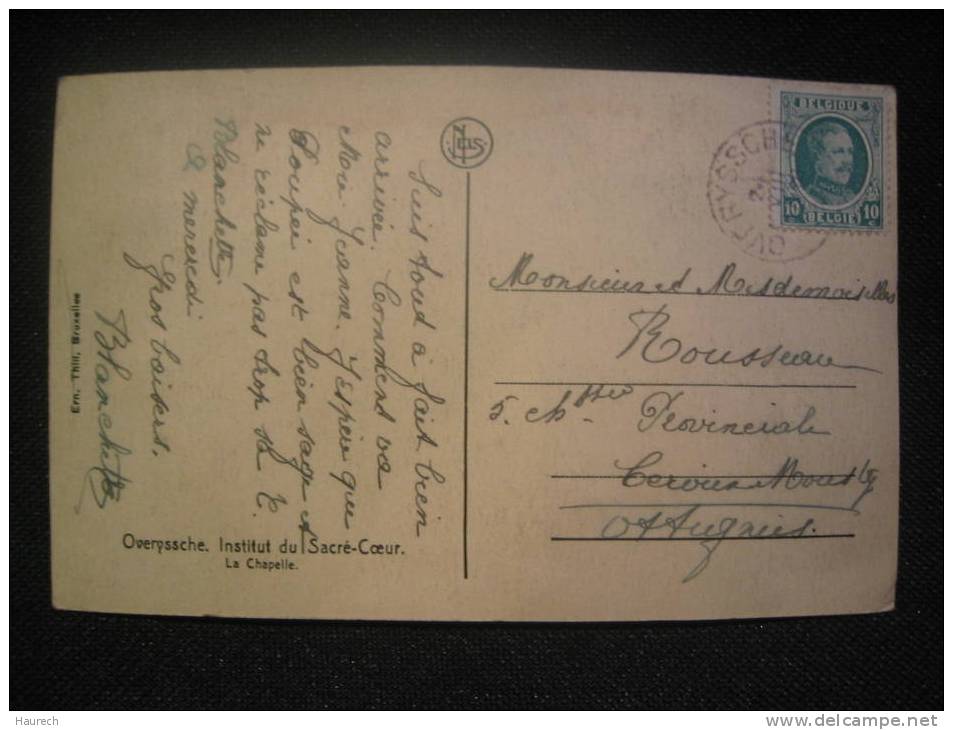 Suis tout à fait bien
arrivée. Comment va
Mie Jeanne. J'espère que
Poupei est bien sage et
ne réclame pas trop sa T.
Blanchette.
à mercredi
Gros baisers.
Blanchette
NELS
Ern. Thill, Bruxelles
Overyssche. Institut du Sacré-Cœur.
La Chapelle.
BELGIQUE
10 BELGIE 10
OVERYSSCHE
Monsieur et Mesdemoiselles
Rousseau
5. Chssée Provinciale
Ceroux-Mousty
Ottignies.
Haurech
www.delcampe.net